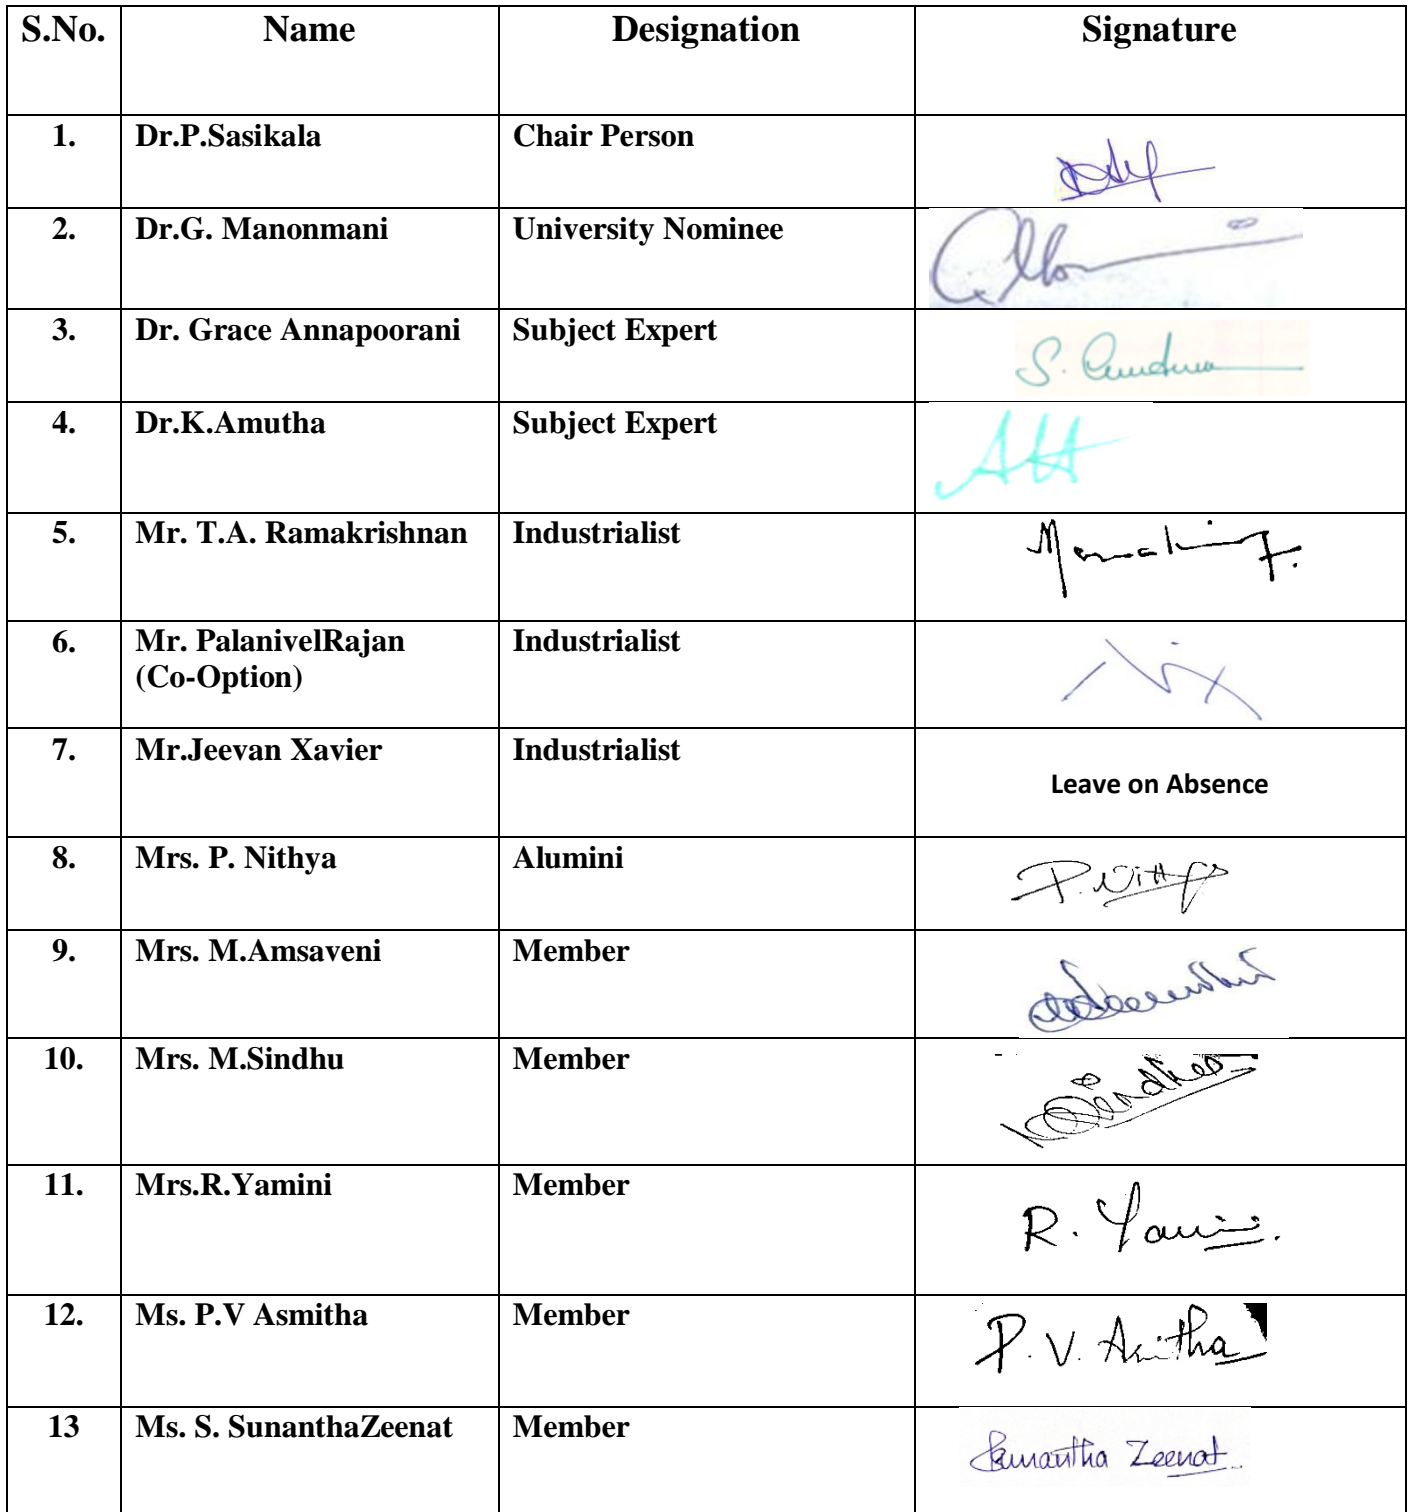 S.No. Name Designation Signature
1. Dr.P.Sasikala Chair Person
2. Dr.G. Manonmani University Nominee
3. Dr. Grace Annapoorani Subject Expert S.
4. Dr.K.Amutha Subject Expert
5. Mr. T.A. Ramakrishnan Industrialist
6. Mr. PalanivelRajan Industrialist
(Co-Option)
7. Mr.Jeevan Xavier Industrialist
Leave on Absence
8. Mrs. P. Nithya Alumini P. Nithya
9. Mrs. M.Amsaveni Member
10. Mrs. M.Sindhu Member
11. Mrs.R.Yamini Member R. Yamini.
12. Ms. P.V Asmitha Member P. V. Asmitha
13 Ms. S. SunanthaZeenat Member Sunantha Zeenat